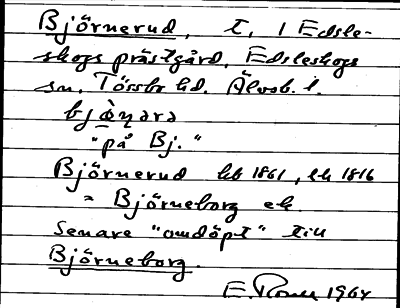 Björnerud, t, i Edsle-
skogs prästgård, Edsleskogs
sn, Tössbo hd. Älvsb. l.
bjö̀ṇara
"på Bj."
Björnerud hb 1861, ek 1816
= Björneborg ek
Senare "omdöpt" till
Björneborg.
E. 1964